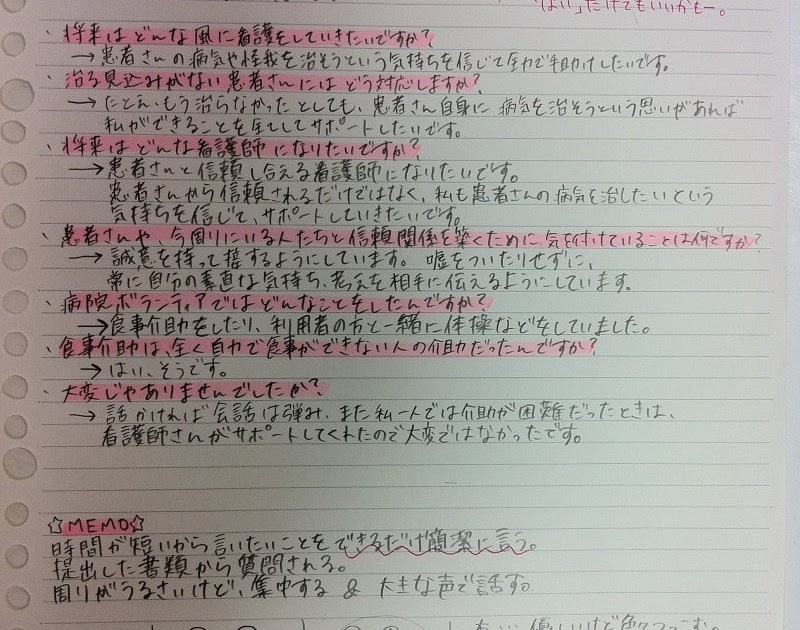 「はい」だけでもいいかも一。
・将来はどんな風に看護をしていきたいですか?
→患者さんの病気や怪我を治そうという気持ちを信じて全力で手助けしたいです。
・治る見込みがない患者さんにはどう対応しますか?
→たとえ、もう治らなかったとしても、患者さん自身に病気を治そうという思いがあれば
私ができることを全てしてサポートしたいです。
・将来はどんな看護師になりたいですか?
→患者さんと信頼し合える看護師になりたいです。
患者さんから信頼されるだけではなく、私も患者さんの病気を治したいという
気持ちを信じて、サポートしていきたいです。
・患者さんや、今周りにいる人たちと信頼関係を築くために気を付けていることは何ですか?
→誠意を持って接するようにしています。嘘をついたりせずに、
常に自分の素直な気持ち、考えを相手に伝えるようにしています。
・病院ボランティアではどんなことをしたんですか?
→食事介助をしたり、利用者の方と一緒に体操などをしていました。
・食事介助は、全く自力で食事ができない人の介助だったんですか?
→はい、そうです。
・大変じゃありませんでしたか?
→話かければ会話は弾み、また私一人では介助が困難だったときは、
看護師さんがサポートしてくれたので大変ではなかったです。
☆MEMO☆
時間が短いから言いたいことをできるだけ簡潔に言う。
提出した書類から質問される。
周りがうるさいけど、集中する & 大きな声で話す。